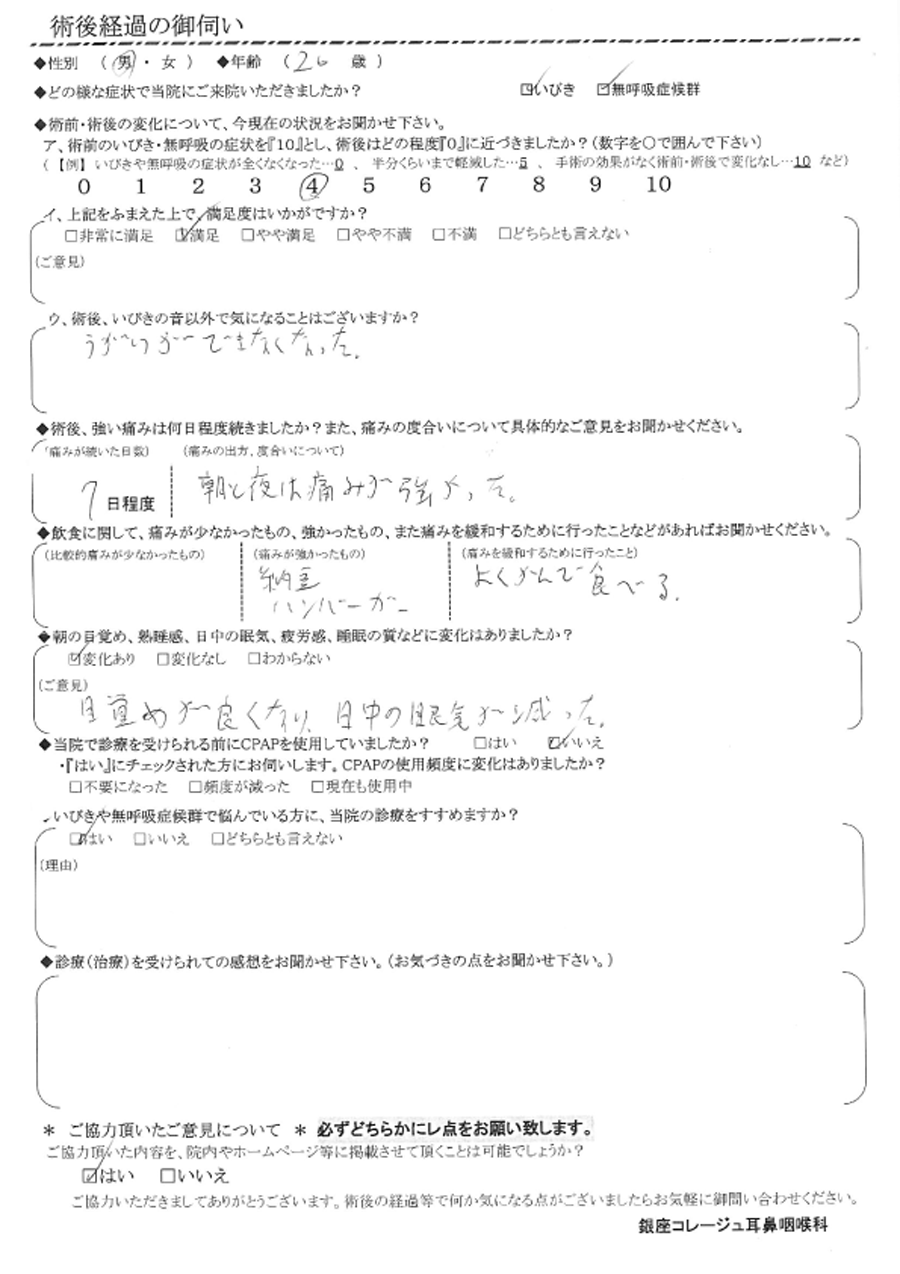 術後経過の御伺い
◆性別 (男・女) ◆年齢 (26 歳)
◆どの様な症状で当院にご来院いただきましたか? ☑いびき ☑無呼吸症候群
◆術前・術後の変化について、今現在の状況をお聞かせ下さい。
ア、術前のいびき・無呼吸の症状を『10』とし、術後はどの程度『0』に近づきましたか?(数字を○で囲んで下さい)
(【例】いびきや無呼吸の症状が全くなくなった…0 、 半分くらいまで軽減した…5 、 手術の効果がなく術前・術後で変化なし…10 など)
0 1 2 3 ④ 5 6 7 8 9 10
イ、上記をふまえた上で、満足度はいかがですか?
□非常に満足 ☑満足 □やや満足 □やや不満 □不満 □どちらとも言えない
(ご意見)
ウ、術後、いびきの音以外で気になることはございますか?
うがいができなくなった。
◆術後、強い痛みは何日程度続きましたか?また、痛みの度合いについて具体的なご意見をお聞かせください。
(痛みが続いた日数) (痛みの出方、度合いについて)
7 日程度 朝と夜は痛みが強かった。
◆飲食に関して、痛みが少なかったもの、強かったもの、また痛みを緩和するために行ったことなどがあればお聞かせください。
(比較的痛みが少なかったもの) (痛みが強かったもの) (痛みを緩和するために行ったこと)
納豆 よくかんで食べる.
ハンバーガー
◆朝の目覚め、熟睡感、日中の眠気、疲労感、睡眠の質などに変化はありましたか?
☑変化あり □変化なし □わからない
(ご意見)
目覚めが良くなり、日中の眠気が減った。
◆当院で診療を受けられる前にCPAPを使用していましたか? □はい ☑いいえ
・『はい』にチェックされた方にお伺いします。CPAPの使用頻度に変化はありましたか?
□不要になった □頻度が減った □現在も使用中
いびきや無呼吸症候群で悩んでいる方に、当院の診療をすすめますか?
☑はい □いいえ □どちらとも言えない
(理由)
◆診療(治療)を受けられての感想をお聞かせ下さい。(お気づきの点をお聞かせ下さい。)
* ご協力頂いたご意見について * 必ずどちらかにレ点をお願い致します。
ご協力頂いた内容を、院内やホームページ等に掲載させて頂くことは可能でしょうか?
☑はい □いいえ
ご協力いただきましてありがとうございます。術後の経過等で何か気になる点がございましたらお気軽に御問い合わせください。
銀座コレージュ耳鼻咽喉科